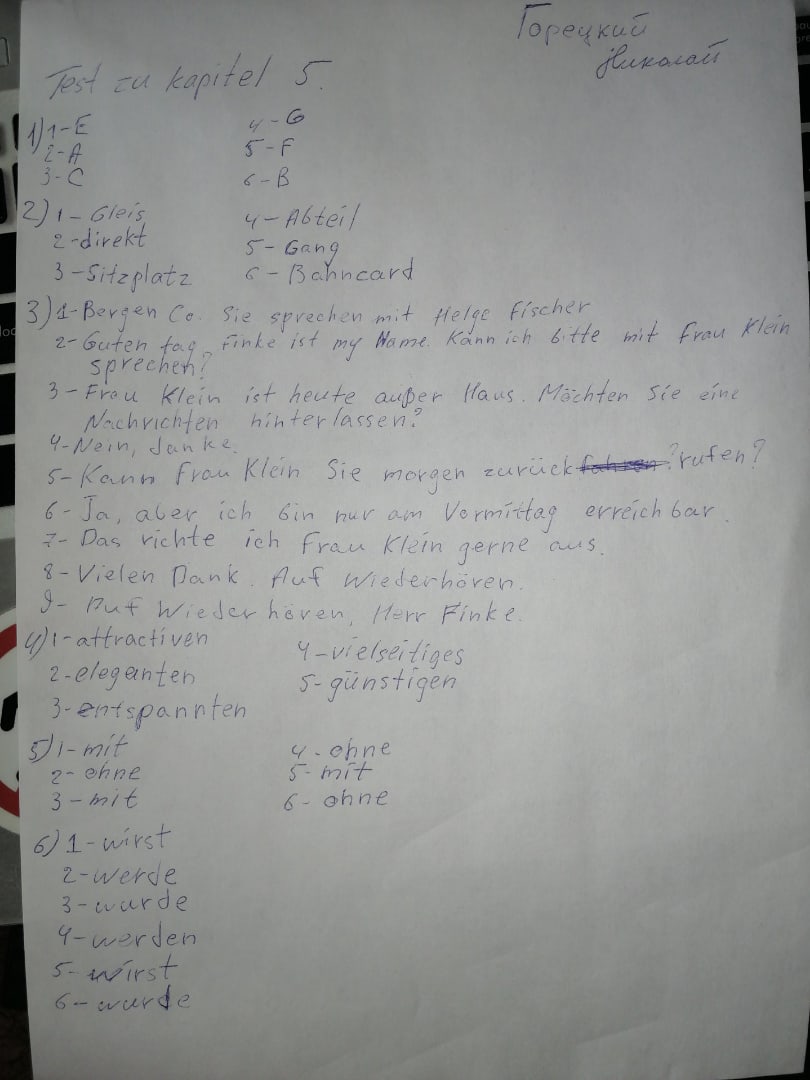 Горецкий
Николай
Test zu kapitel 5.
1) 1-E 4-G
2-A 5-F
3-C 6-B
2) 1- Gleis 4-Abteil
2-direkt 5-Gang
3-Sitzplatz 6-Bahncard
3) 1-Bergen Co. Sie sprechen mit Helge Fischer
2-Guten tag, Finke ist my Name. Kann ich bitte mit Frau Klein
sprechen?
3-Frau Klein ist heute außer Haus. Möchten Sie eine
Nachrichten hinterlassen?
4-Nein, danke.
5-Kann Frau Klein Sie morgen zurück rufen?
6-Ja, aber ich bin nur am Vormittag erreichbar.
7-Das richte ich Frau Klein gerne aus.
8-Vielen Dank. Auf Wiederhören.
9-Auf Wiederhören, Herr Finke.
4) 1-attractiven 4-vielseitiges
2-eleganten 5-günstigen
3-entspannten
5) 1-mit 4-ohne
2-ohne 5-mit
3-mit 6-ohne
6) 1-wirst
2-werde
3-wurde
4-werden
5-wirst
6-wurde